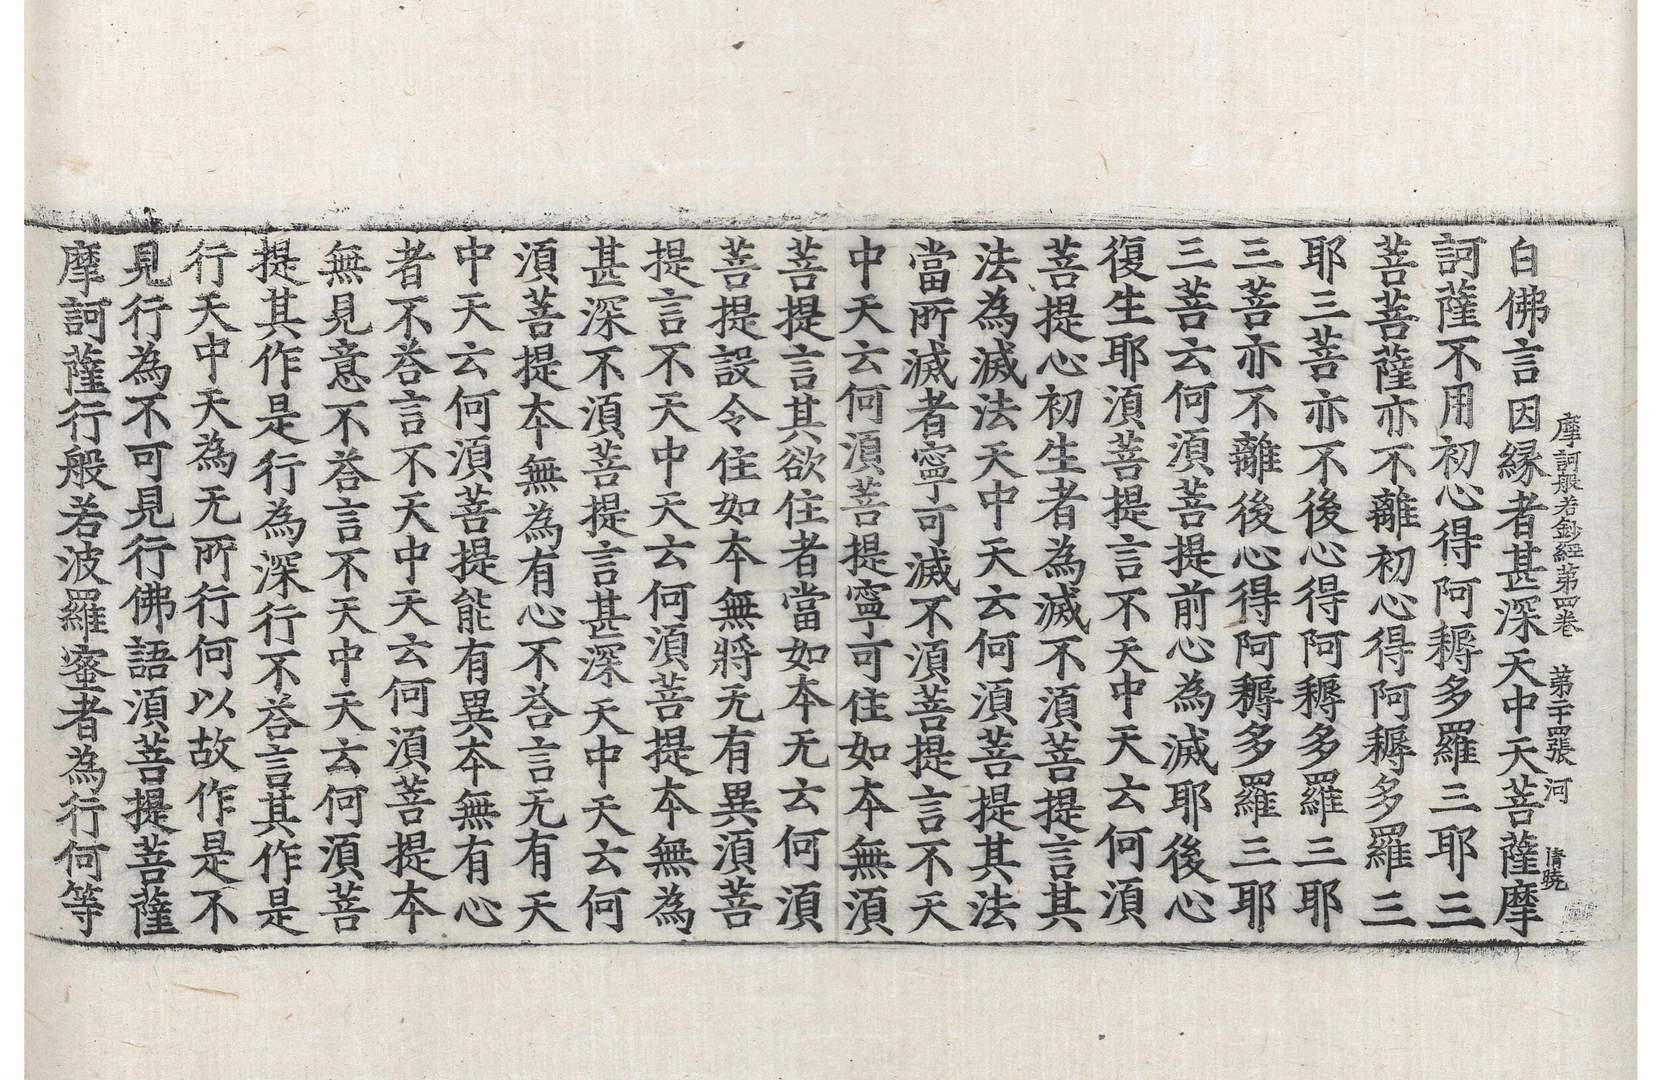 摩訶般若鈔經第四卷 第二十四張 河 清曉
白佛言因縁者甚深天中天菩薩摩
訶薩不用初心得阿耨多羅三耶三
菩菩薩亦不離初心得阿耨多羅三
耶三菩亦不後心得阿耨多羅三耶
三菩亦不離後心得阿耨多羅三耶
三菩云何須菩提前心為滅耶後心
復生耶須菩提言不天中天云何須
菩提心初生者為滅不須菩提言其
法為滅滅法天中天云何須菩提其法
當所滅者寧可滅不須菩提言不天
中天云何須菩提寧可住如本無須
菩提言其欲住者當如本无云何須
菩提設令住如本無將无有異須菩
提言不天中天云何須菩提本無為
甚深不須菩提言甚深天中天云何
須菩提本無為有心不荅言无有天
中天云何須菩提能有異本無有心
者不荅言不天中天云何須菩提本
無見意不荅言不天中天云何須菩
提其作是行為深行不荅言其作是
行天中天為无所行何以故作是不
見行為不可見行佛語須菩提菩薩
摩訶薩行般若波羅蜜者為行何等